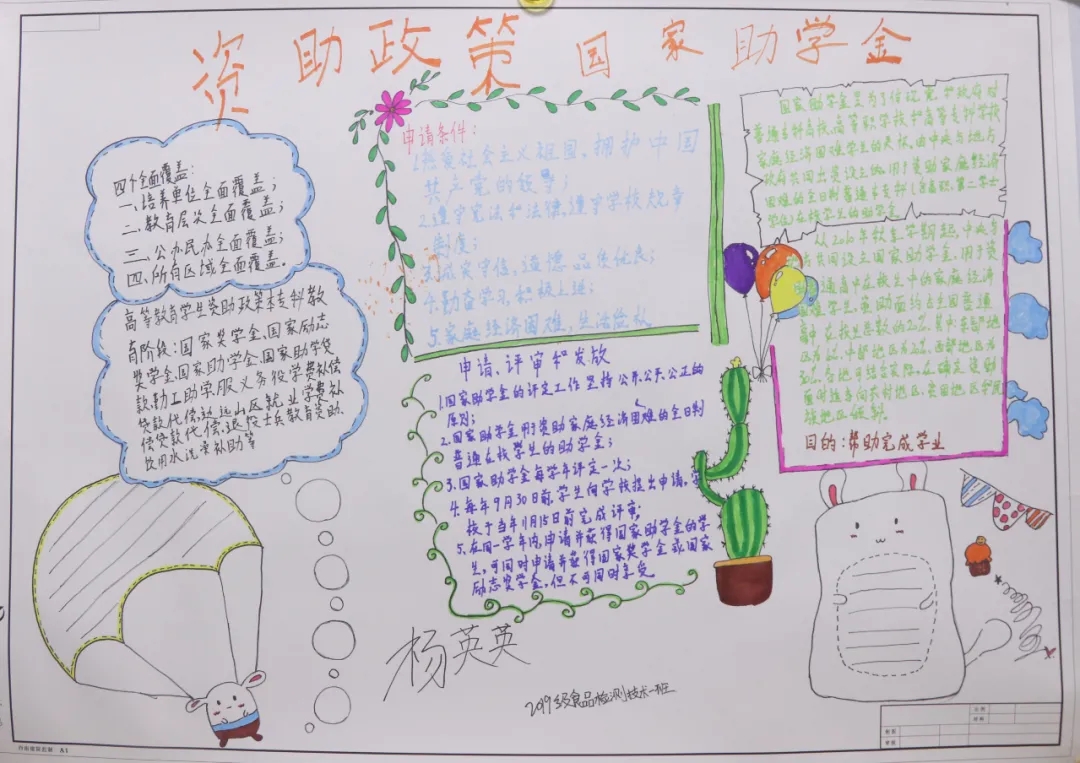 资助政策 国家助学金
四个全面覆盖:
一、培养单位全面覆盖;
二、教育层次全面覆盖;
三、公办民办全面覆盖;
四、所有区域全面覆盖。
高等教育学生资助政策本专科教
育阶段:国家奖学金、国家励志
奖学金、国家助学金、国家助学贷
款、勤工助学、服义务役学费补偿
贷款代偿、达远山区就业学费补
偿贷款代偿、退役士兵教育资助、
饮用水洗澡补助等
申请条件:
1.热爱社会主义祖国,拥护中国
共立党的领导;
2.遵守宪法和法律,遵守学校规章
制度;
3.诚实守信,道德品质优良;
4.勤奋学习,积极上进;
5.家庭经济困难,生活俭朴
申请、评审和发放
1.国家助学金的评定工作坚持公开、公平、公正的
原则;
2.国家助学金用于资助家庭经济困难的全日制
普通在校学生的助学金;
3.国家助学金每学年评定一次;
4.每年9月30日前,学生向学校提出申请,学
校于当年11月15日前完成评审;
5、在同一学年内,申请并获得国家助学金的学
生,可同时申请并获得国家奖学金或国家
励志奖学金,但不可同时享受
国家助学金是为了体现党和政府对
普通本科高校、高等职业学校和高等专科学校
家庭经济困难学生的关怀,由中央与地方
政府共同出资设立的,用于资助家庭经济
困难的全日制普通本专科(含高职、第二学士
学位)在校学生的助学金
从2010年秋季学期起,中央与
地方共同设立国家助学金,用于资
助普通高中在校生中的家庭经济
困难学生,资助面约占全国普通
高中在校生总数的20%。其中:东部地
区为10%、中部地区为20%、西部地区为
30%。各地可结合实际,在确定资助
面时适当向农村地区、贫困地区和民
族地区倾斜
目的:帮助完成学业
杨英英
2019级食品检测技术一班
A1